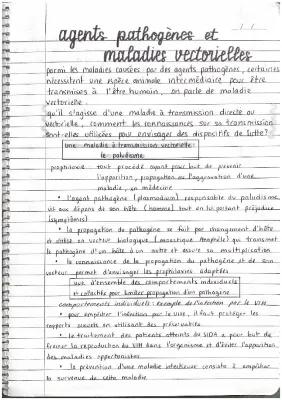 agents pathogènes et
maladies vectorielles
parmi les maladies causées par des agents pathogènes, certaines
nécessitent une espèce animale intermédiaire pour être
transmises à l'être humain, on parle de maladie
vectorielle.
qu'il s'agisse d'une maladie à transmission directe ou
vectorielle, comment les connaissances sur sa transmission
sont-elles utilisées pour envisager des dispositifs de lutte?
une maladie à transmission vectorielle:
le paludisme
prophylaxie: tout procédé ayant pour but de prévenir
l'apparition, propagation ou l'aggravation d'une
maladie, en médecine
• l'agent pathogène (plasmodium) responsable du paludisme
vit aux dépens de son hôte (homme) tout en lui posant préjudice
(symptômes)
• la propagation du pathogène se fait par changement d'hôte
et utilise un vecteur biologique (moustique Anophèle) qui transmet
le pathogène d'un hôte à un autre et assure sa multiplication.
• la connaissance de la propagation du pathogène et de son
vecteur permet d'envisager les prophylaxies adaptées
vue d'ensemble des comportements individuels
et collectifs pour limiter propagation d'un pathogène
comportements individuels: exemple de l'infection par le VIH
• pour empêcher l'infection par le VIH, il faut protéger les
rapports sexuels en utilisant des préservatifs
• le traitement des patients atteints du SIDA a pour but de
freiner la reproduction du VIH dans l'organisme et d'éviter l'apparition
des maladies opportunistes
• la prévention d'une maladie infectieuse consiste à empêcher
la survenue de cette maladie